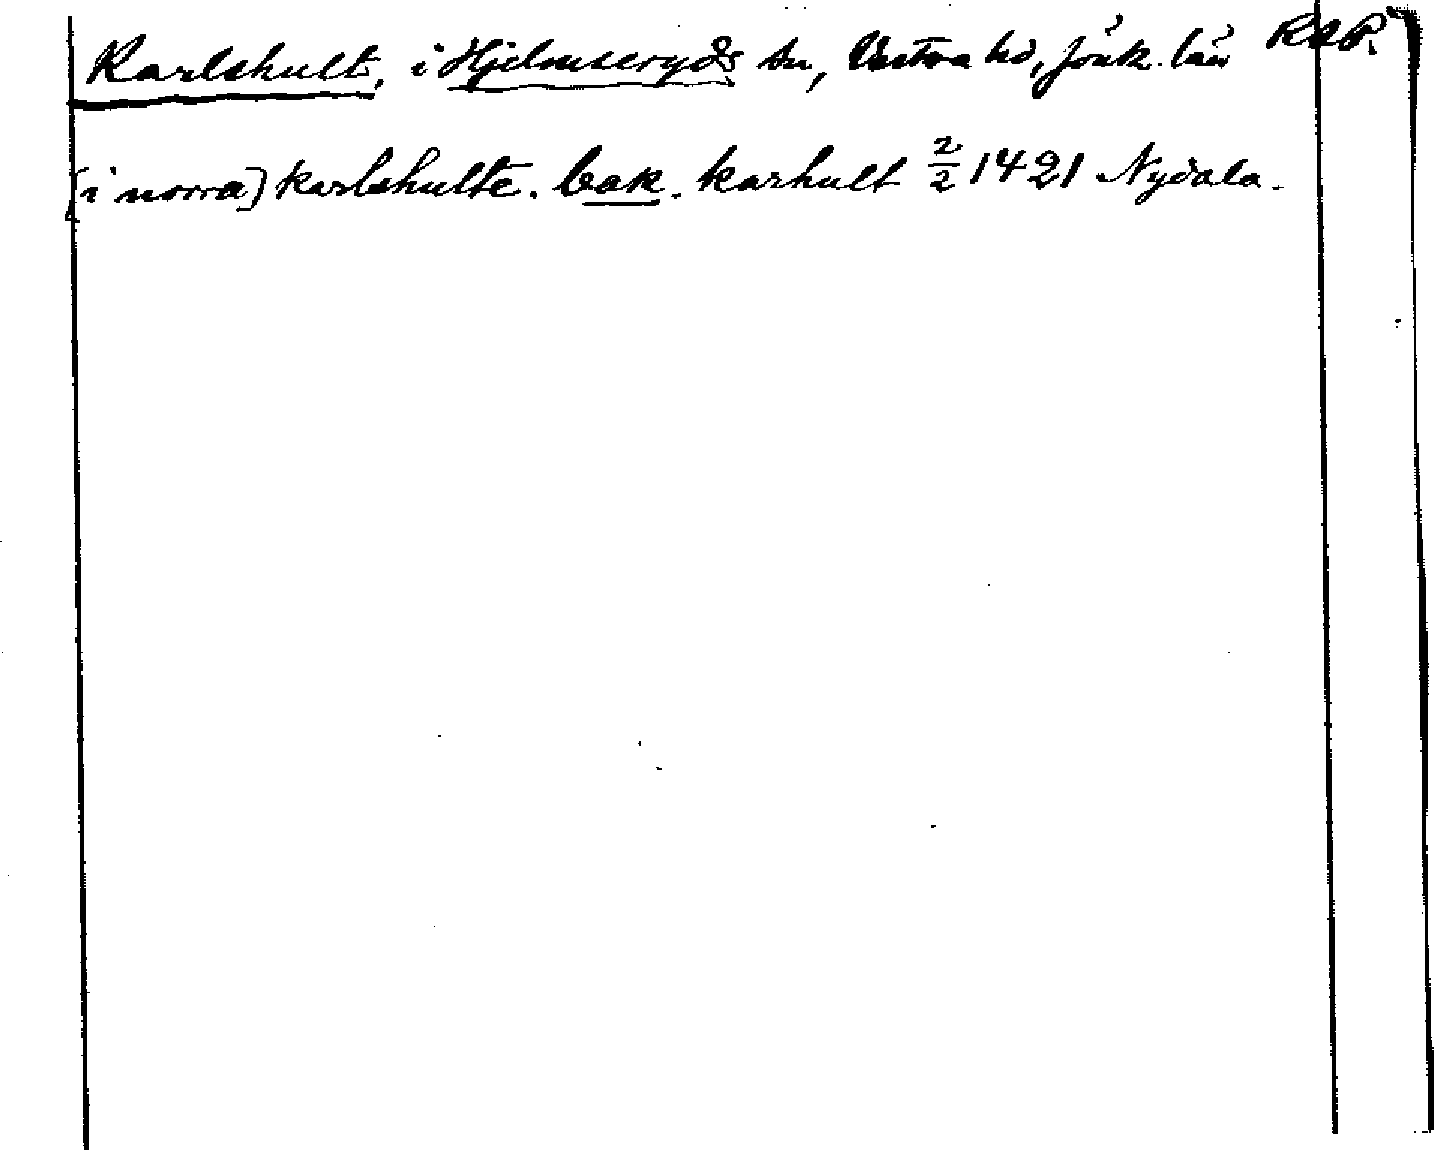 Karlshult, i Hjelmseryds sn, Västra hd, Jönk. län RAP.
(i norra) karlshulte. bak. karhult 2/2 1421 Nydala.